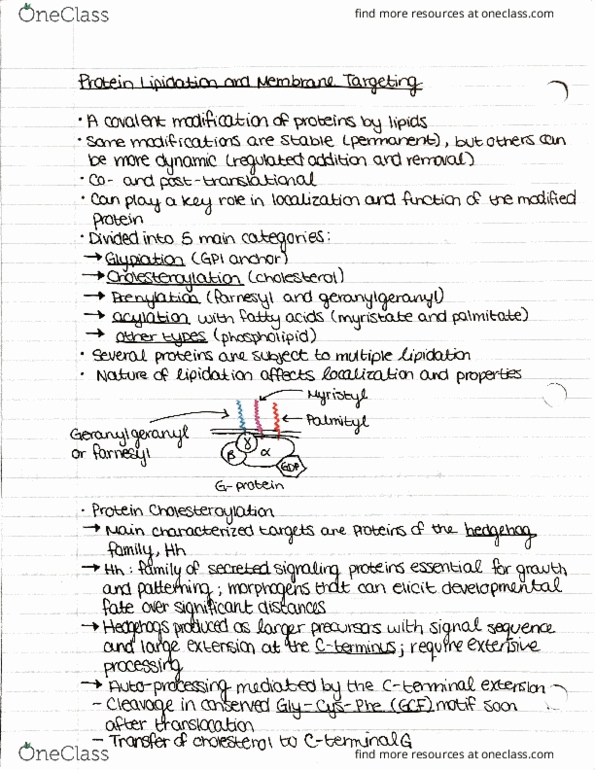 OneClass
find more resources at oneclass.com
Protein Lipidation and Membrane Targeting
• A covalent modification of proteins by lipids
• Some modifications are stable (permanent), but others can
be more dynamic (regulated addition and removal)
• Co- and post-translational
• Can play a key role in localization and function of the modified
protein
• Divided into 5 main categories:
→ Glypiation (GPI anchor)
→ Cholesteroylation (cholesterol)
→ Prenylation (farnesyl and geranylgeranyl)
→ acylation with fatty acids (myristate and palmitate)
→ other types (phospholipid)
• Several proteins are subject to multiple lipidation
• Nature of lipidation affects localization and properties
Myristyl
Palmityl
Geranylgeranyl
or farnesyl
β γ α GDP
G-protein
• Protein Cholesteroylation
→ Main characterized targets are proteins of the hedgehog
family, Hh
→ Hh: family of secreted signaling proteins essential for growth
and patterning; morphogens that can elicit developmental
fate over significant distances
→ Hedgehogs produced as larger precursors with signal sequence
and large extension at the C-terminus; require extensive
processing
→ Auto-processing mediated by the C-terminal extension
- Cleavage in conserved Gly-Cys-Phe (GCF) motif soon
after translocation
- Transfer of cholesterol to C-terminal G
OneClass
find more resources at oneclass.com